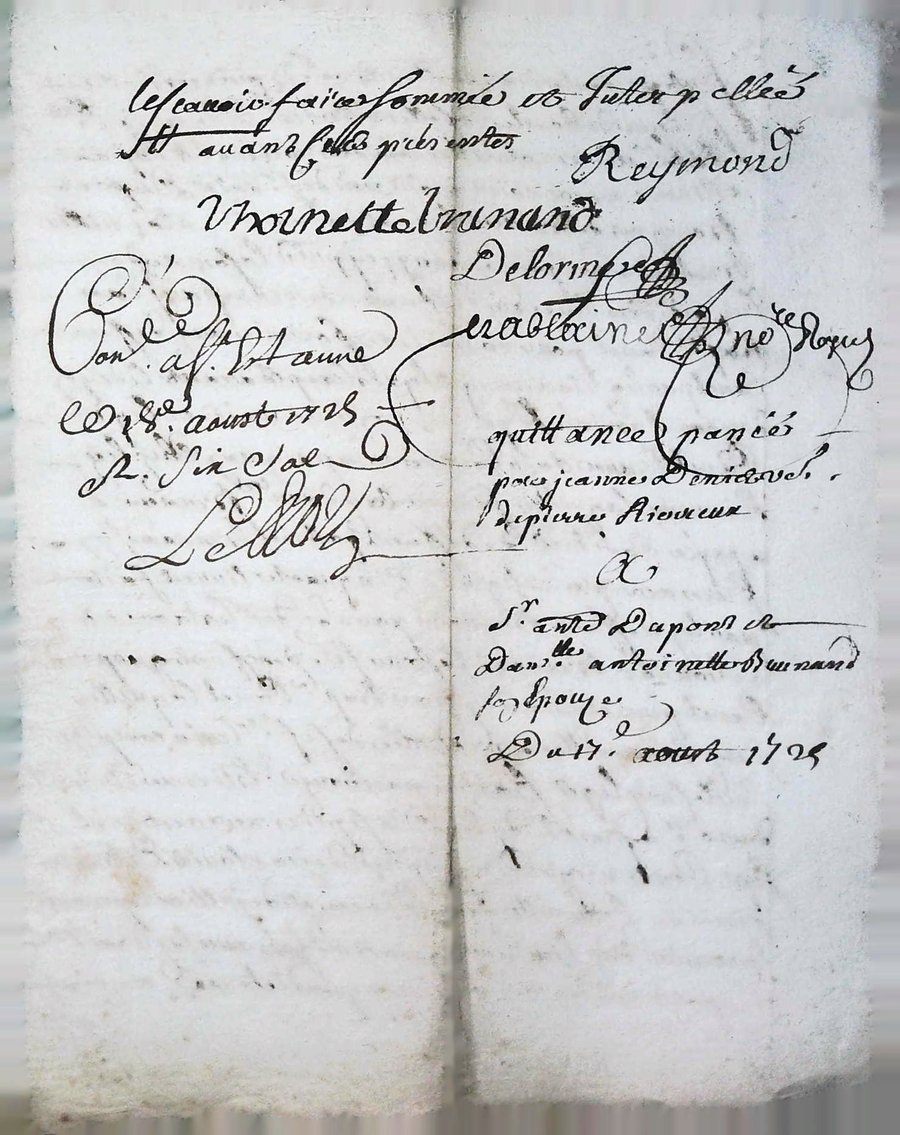 le scauoir faire sommée et Interpellée
auant ces présentes
Reymond
Thoinette brunand
Delorme
nore Royal
Con.lée a St. Estienne
le 18e. aoust 1725
R. Six Sol
LeRoy
quittance pancée
par jeanne Denis veé.
de pierre Riuoreux
A
Sr. antⁿᵉ Dupont et
Damlle antoinette Brunand
son Epouze
Du 17e aoust 1725